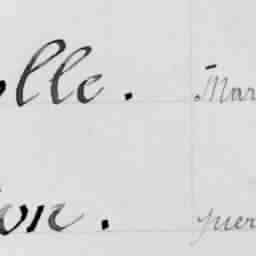 olle. Mar
on. quer